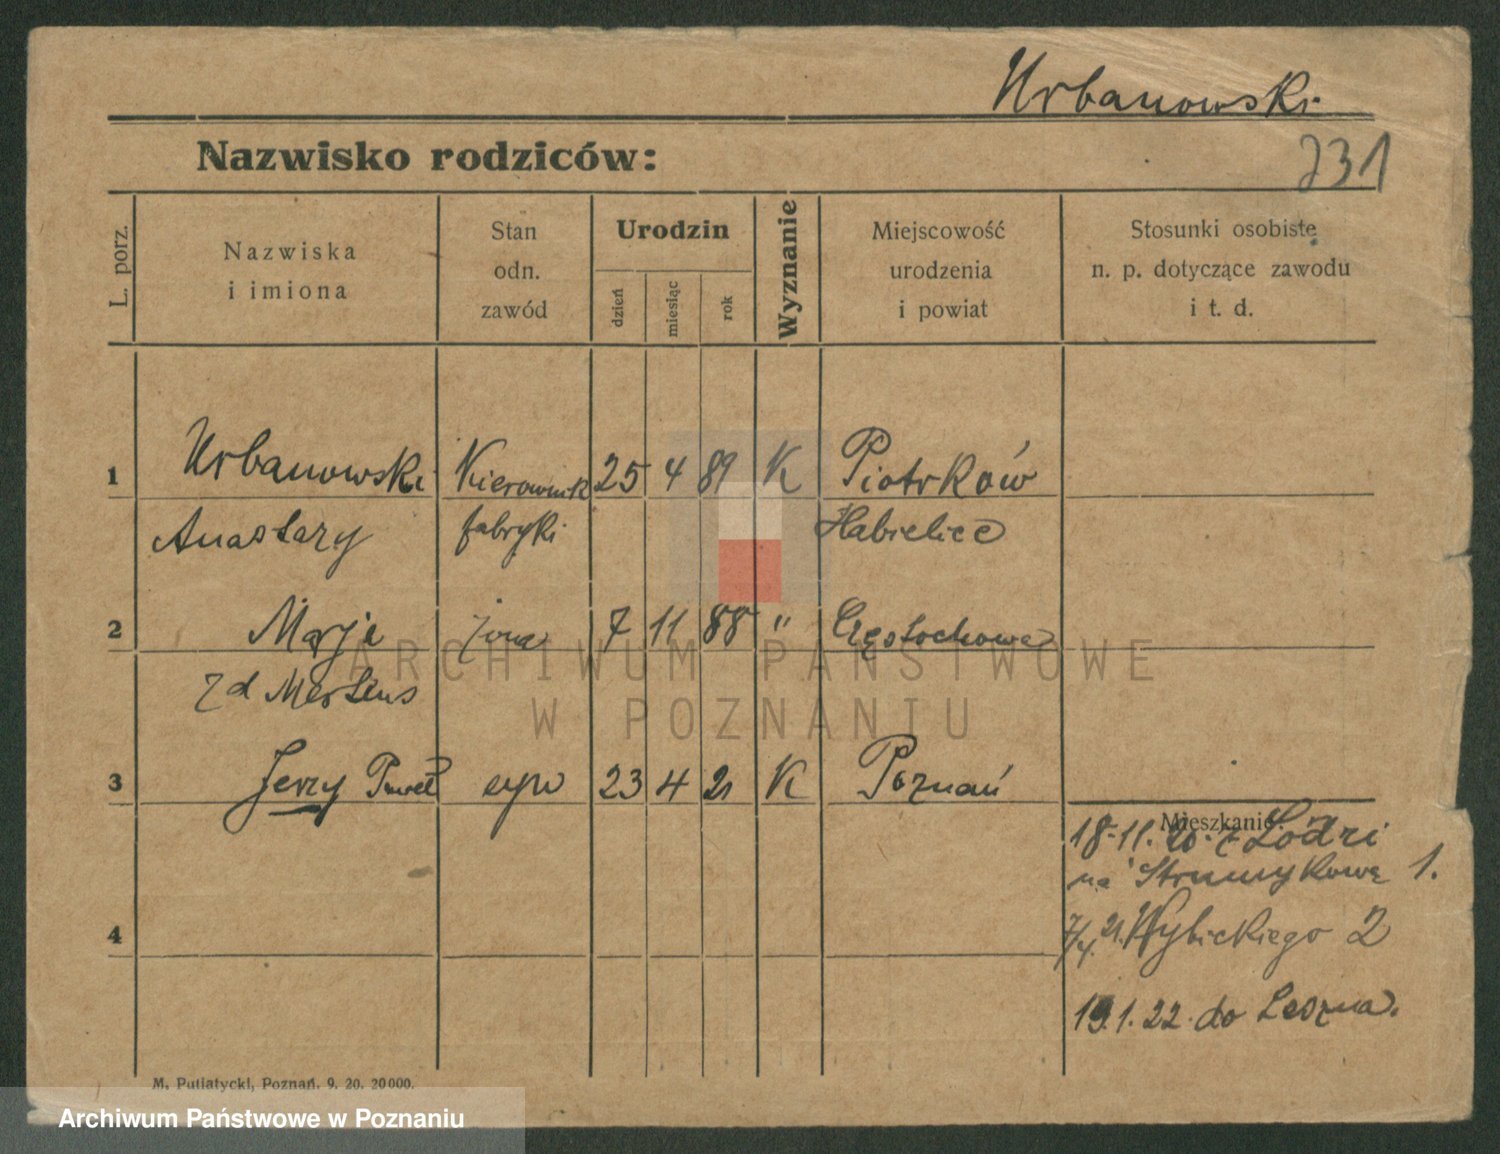 Urbanowski
Nazwisko rodziców:
731
L. porz.
Nazwiska
i imiona
Stan
odn.
zawód
Urodzin
dzień
miesiąc
rok
Wyznanie
Miejscowość
urodzenia
i powiat
Stosunki osobiste
n. p. dotyczące zawodu
i t. d.
1 Urbanowski Kierownik 25 4 89 K Piotrków
Anastazy fabryki
2 Marja żona 7 11 88 " Częstochowa
zd Mertens
3 Jerzy Paweł syn 23 4 21 K Poznań
Mieszkanie:
18-11. 20. z Łodzi
na Strumykową 1.
4
7/4. 21. Wybickiego 2
19.1.22. do Leszna.
M. Putiatycki, Poznań. 9. 20. 20000.
ARCHIWUM PAŃSTWOWE
W POZNANIU
Archiwum Państwowe w Poznaniu